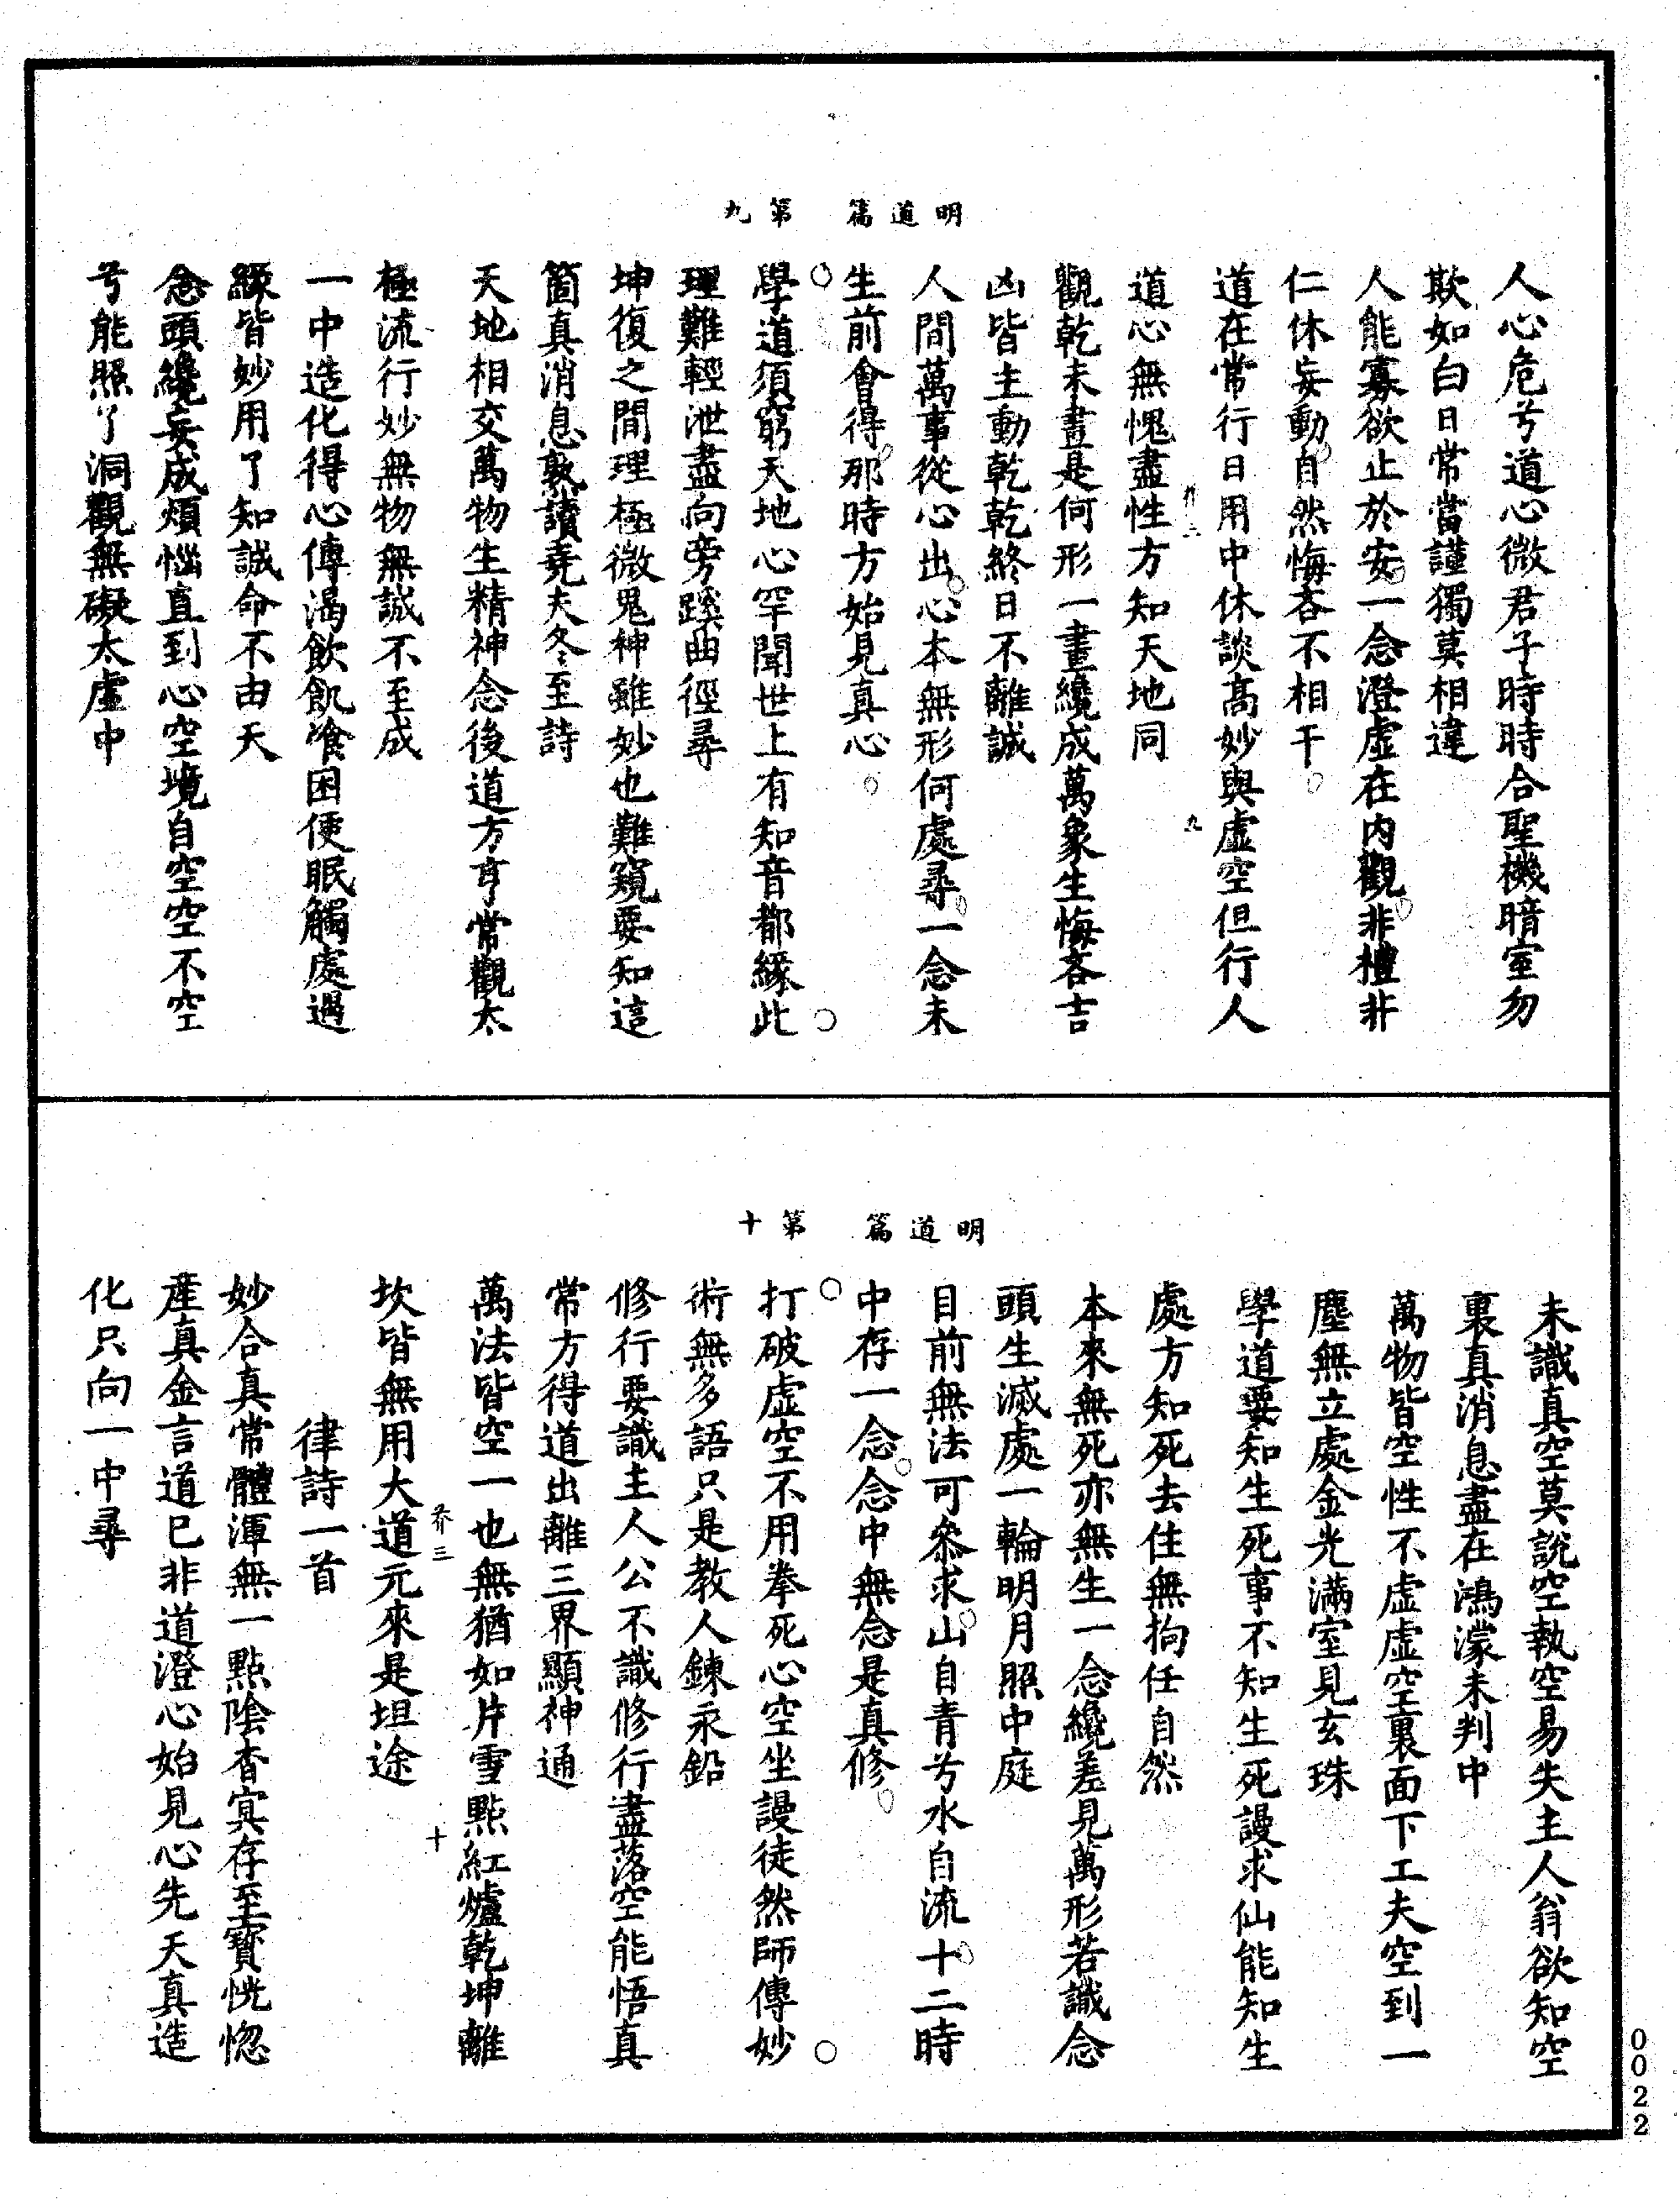 明道篇　第九
人心危兮道心微君子時時合聖機暗室勿
欺如白日常當謹獨莫相違
人能寡欲止於安一念澄虛在內觀非禮非
仁休妄動自然悔吝不相干
道在常行日用中休談高妙與虛空但行人
芥二　九
道心無愧盡性方知天地同
觀乾未畫是何形一畫纔成萬象生悔吝吉
凶皆主動乾乾終日不離誠
人間萬事從心出心本無形何處尋一念未
生前會得那時方始見真心
學道須窮天地心罕聞世上有知音都緣此
理難輕泄盡向旁蹊曲徑尋
坤復之間理極微鬼神雖妙也難窺要知這
箇真消息熟讀堯夫冬至詩
天地相交萬物生精神念後道方亨常觀太
極流行妙無物無誠不至成
一中造化得心傳渴飲飢飡困便眠觸處遇
緣皆妙用了知誠命不由天
念頭纔妄成煩惱直到心空境自空空不空
兮能照了洞觀無礙太虛中
明道篇　第十
未識真空莫說空執空易失主人翁欲知空
裏真消息盡在鴻濛未判中
萬物皆空性不虛虛空裏面下工夫空到一
塵無立處金光滿室見玄珠
學道要知生死事不知生死謾求仙能知生
處方知死去住無拘任自然
本來無死亦無生一念纔差見萬形若識念
頭生滅處一輪明月照中庭
目前無法可叅求山自青兮水自流十二時
中存一念念中無念是真修
打破虛空不用拳死心空坐謾徒然師傳妙
術無多語只是教人鍊汞鉛
修行要識主人公不識修行盡落空能悟真
常方得道出離三界顯神通
萬法皆空一也無猶如片雪點紅爐乾坤離
芥三　十
坎皆無用大道元來是坦途
律詩一首
妙合真常體渾無一點陰杳冥存至寶恍惚
產真金言道已非道澄心始見心先天真造
化只向一中尋
0022